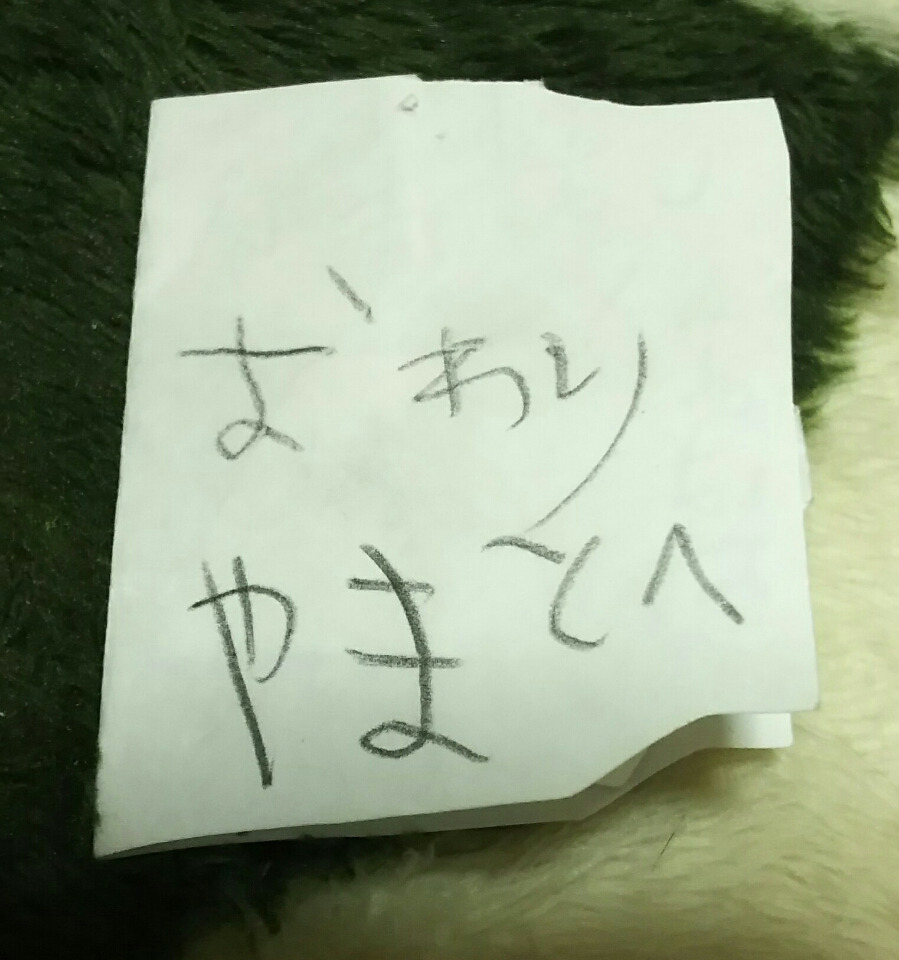 おわり
やまとへ